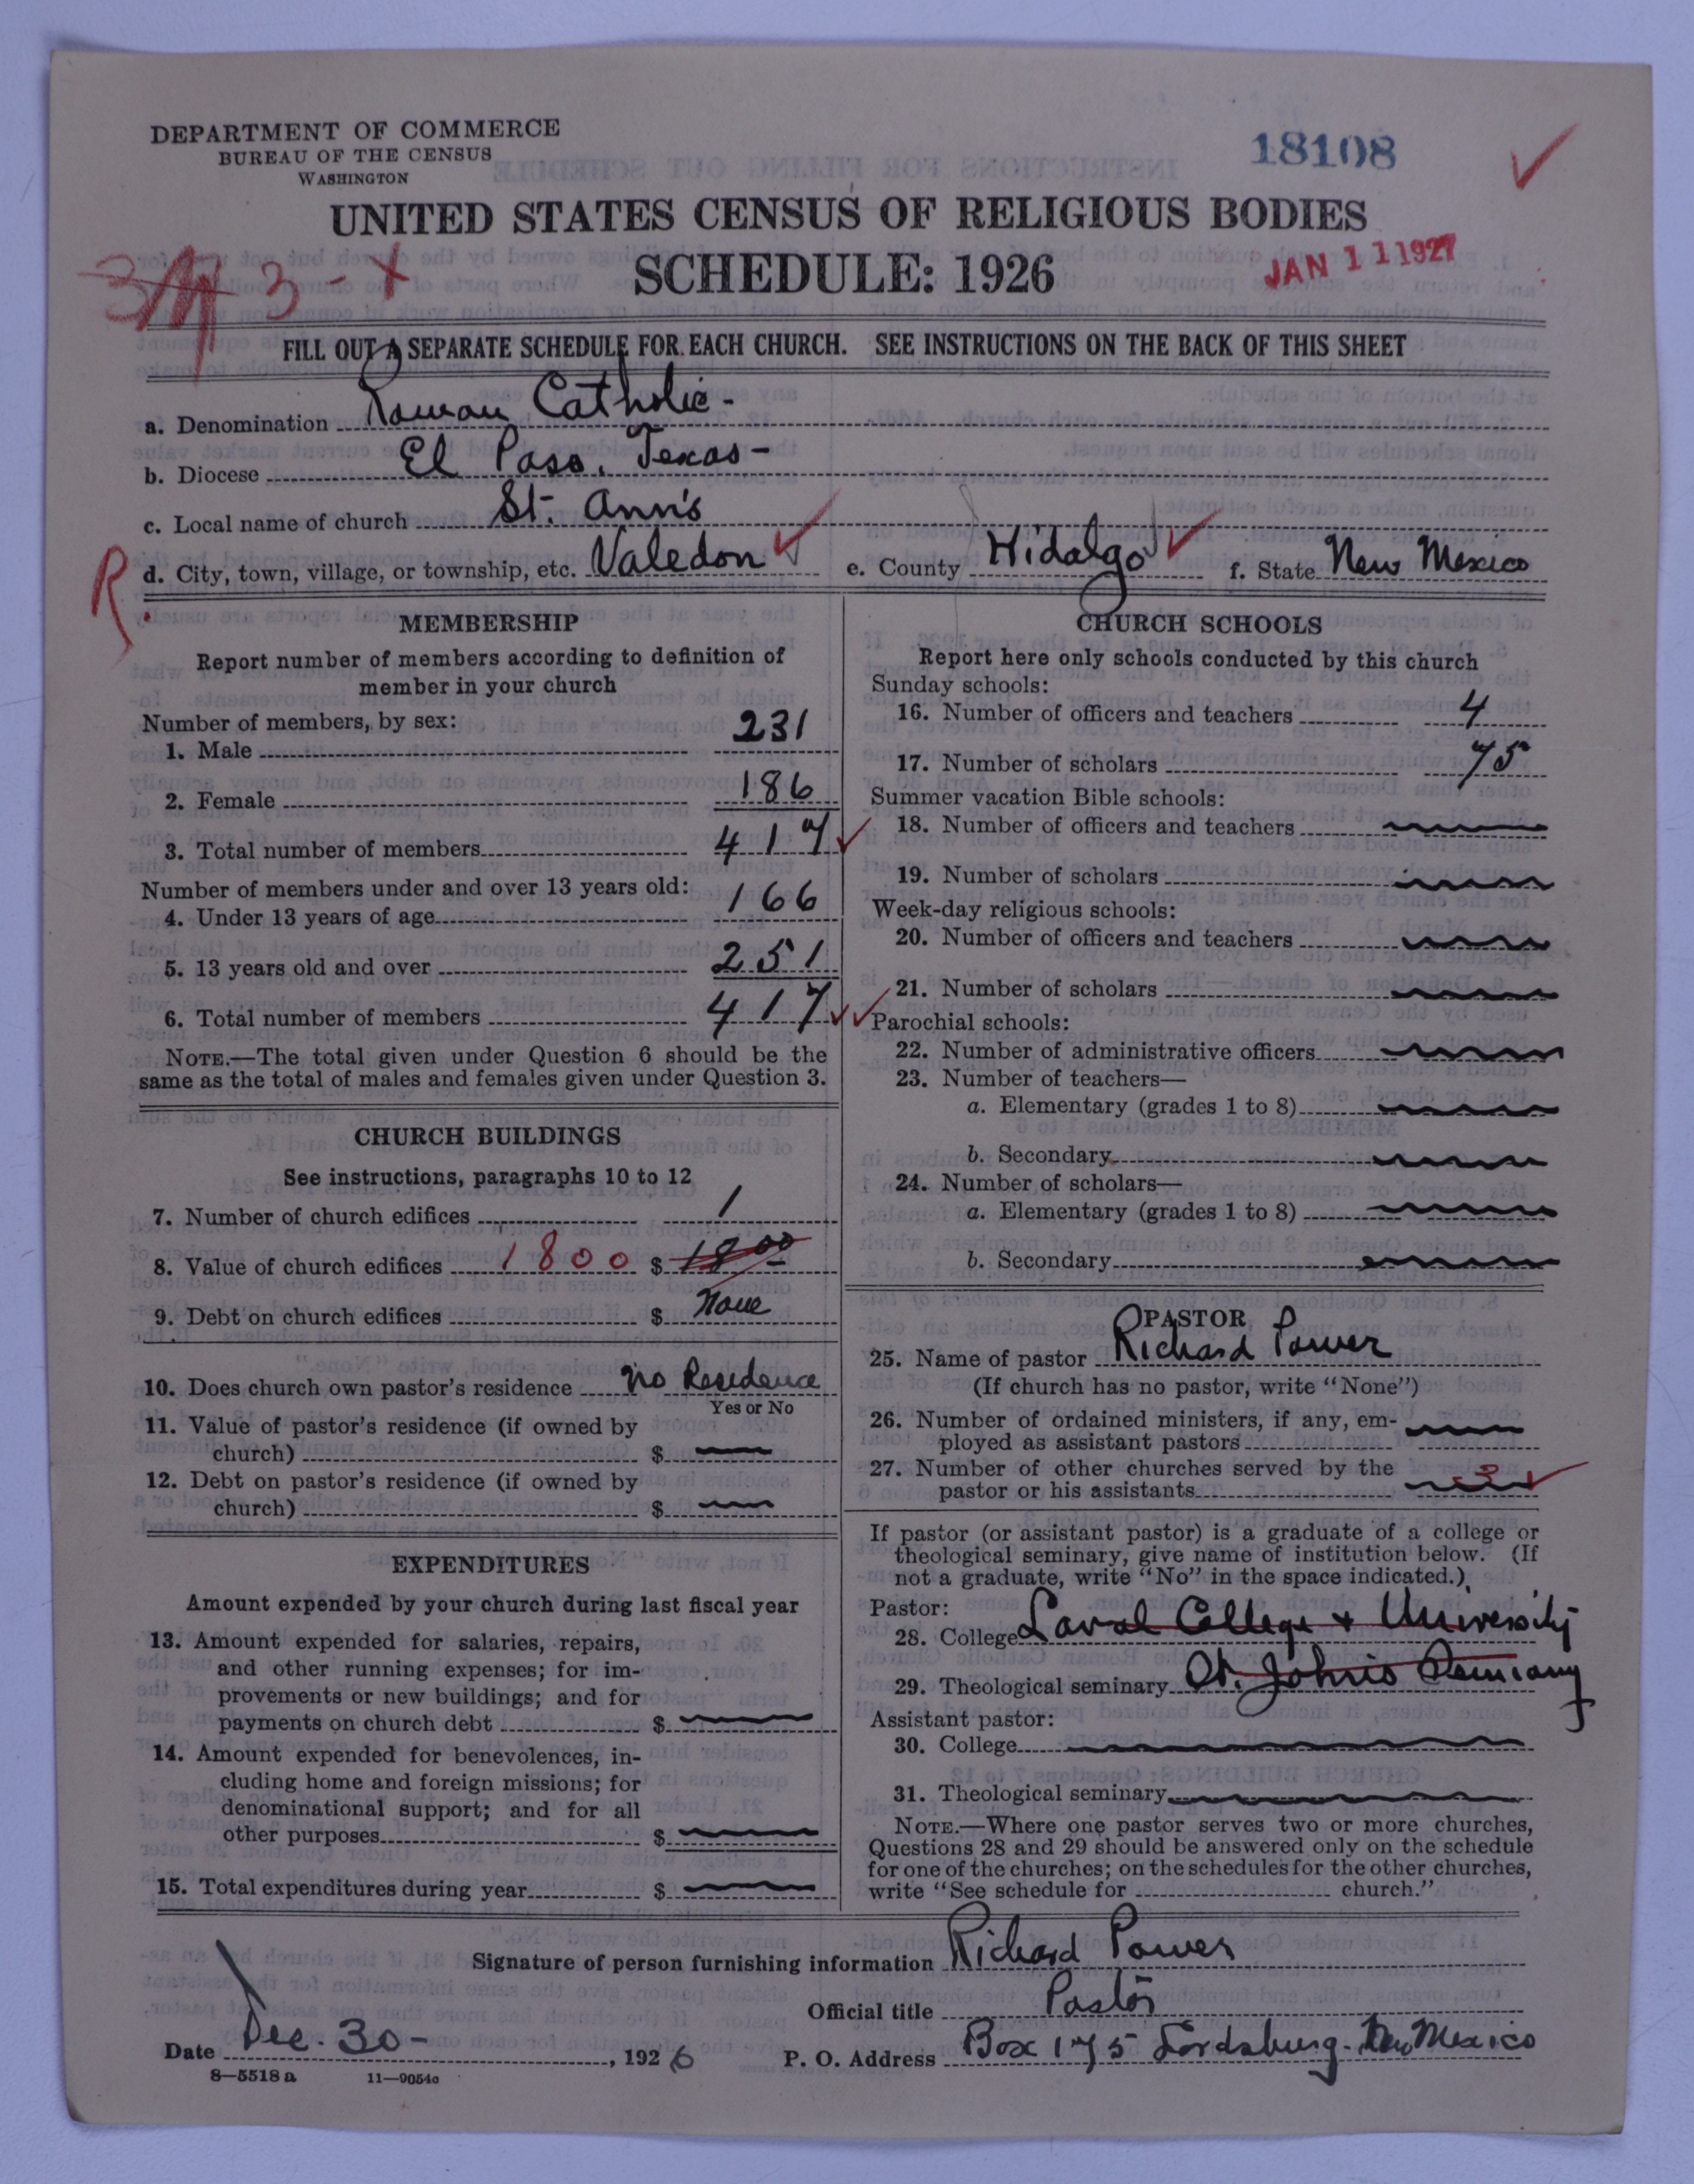 DEPARTMENT OF COMMERCE
BUREAU OF THE CENSUS
WASHINGTON
18108
UNITED STATES CENSUS OF RELIGIOUS BODIES
SCHEDULE: 1926
JAN 11 1927
3 - X
FILL OUT A SEPARATE SCHEDULE FOR EACH CHURCH. SEE INSTRUCTIONS ON THE BACK OF THIS SHEET
a. Denomination Roman Catholic -
b. Diocese El Paso, Texas -
c. Local name of church St. Ann's
R. d. City, town, village, or township, etc. Valedon e. County Hidalgo f. State New Mexico
MEMBERSHIP
Report number of members according to definition of
member in your church
Number of members, by sex:
1. Male 231
2. Female 186
3. Total number of members 417
Number of members under and over 13 years old:
4. Under 13 years of age 166
5. 13 years old and over 251
6. Total number of members 417
NOTE.—The total given under Question 6 should be the
same as the total of males and females given under Question 3.
CHURCH BUILDINGS
See instructions, paragraphs 10 to 12
7. Number of church edifices 1
8. Value of church edifices 1800 $ 1800
9. Debt on church edifices $ None
10. Does church own pastor's residence No Residence
Yes or No
11. Value of pastor's residence (if owned by
church) $
12. Debt on pastor's residence (if owned by
church) $
EXPENDITURES
Amount expended by your church during last fiscal year
13. Amount expended for salaries, repairs,
and other running expenses; for im-
provements or new buildings; and for
payments on church debt $
14. Amount expended for benevolences, in-
cluding home and foreign missions; for
denominational support; and for all
other purposes $
15. Total expenditures during year $
CHURCH SCHOOLS
Report here only schools conducted by this church
Sunday schools:
16. Number of officers and teachers 4
17. Number of scholars 75
Summer vacation Bible schools:
18. Number of officers and teachers
19. Number of scholars
Week-day religious schools:
20. Number of officers and teachers
21. Number of scholars
Parochial schools:
22. Number of administrative officers
23. Number of teachers—
a. Elementary (grades 1 to 8)
b. Secondary
24. Number of scholars—
a. Elementary (grades 1 to 8)
b. Secondary
PASTOR
25. Name of pastor Richard Power
(If church has no pastor, write "None")
26. Number of ordained ministers, if any, em-
ployed as assistant pastors
27. Number of other churches served by the
pastor or his assistants 3
If pastor (or assistant pastor) is a graduate of a college or
theological seminary, give name of institution below. (If
not a graduate, write "No" in the space indicated.)
Pastor:
28. College Laval College & University
29. Theological seminary St. Johns Seminary
Assistant pastor:
30. College
31. Theological seminary
NOTE.—Where one pastor serves two or more churches,
Questions 28 and 29 should be answered only on the schedule
for one of the churches; on the schedules for the other churches,
write "See schedule for church."
Signature of person furnishing information Richard Power
Official title Pastor
Date Dec. 30 - , 1926 P. O. Address Box 175 Lordsburg. New Mexico
8—5518 a 11—9054c